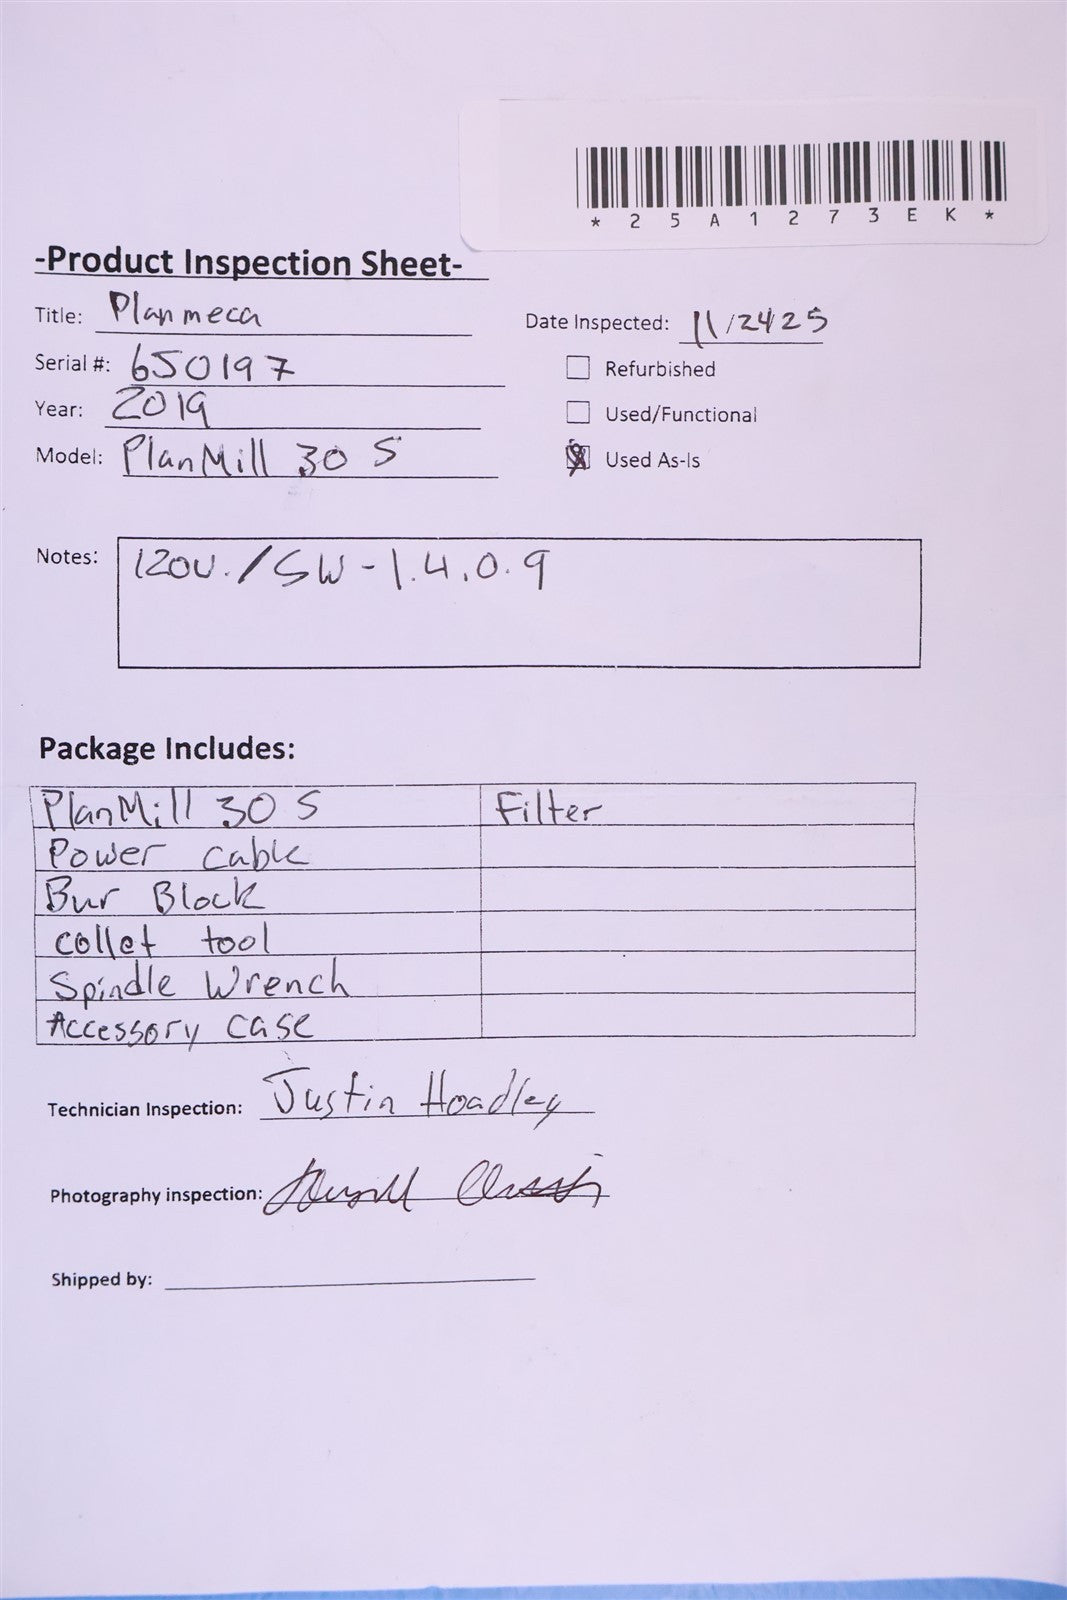 *25A1273EK*
-Product Inspection Sheet-
Title: Planmeca
Date Inspected: 11/2425
Serial #: 650197
Refurbished
Year: 2019
Used/Functional
Model: PlanMill 30 S
Used As-Is
Notes: 120V./SW-1.4.0.9
Package Includes:
PlanMill 30 S Filter
Power cable
Bur Block
collet tool
Spindle Wrench
Accessory case
Technician Inspection: Justin Hoadley
Photography inspection:
Shipped by: